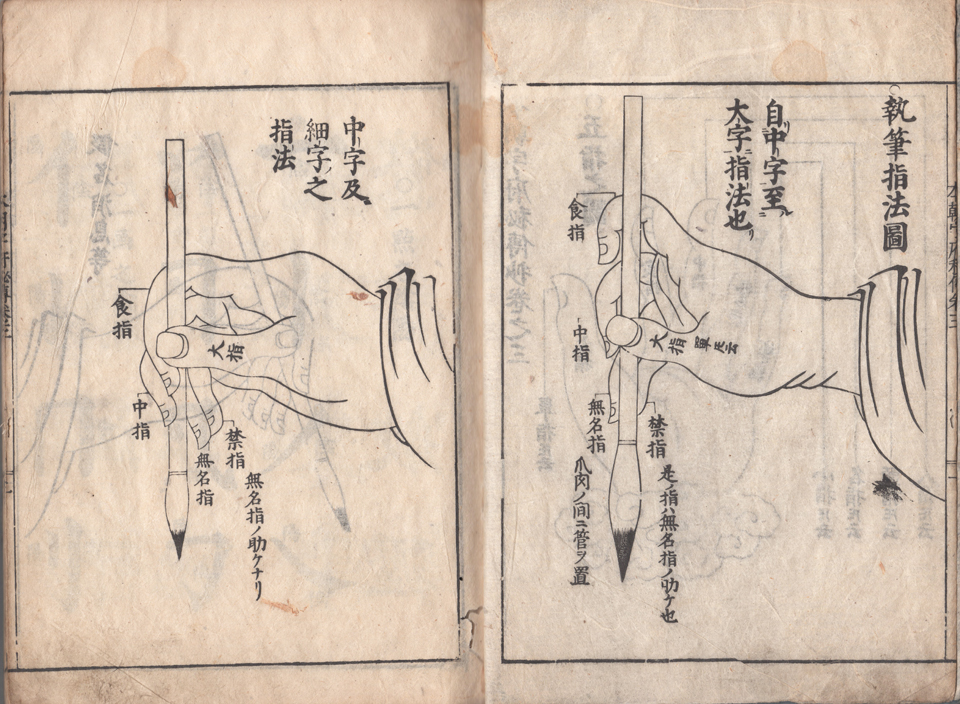 執筆指法圖
自中字至
大字指法也
食指
中指
大指 單
無名指
爪肉ノ間ニ管ヲ置
禁指
是ノ指ハ無名指ノ助ケ也
中字及
細字之
指法
食指
大指
中指
無名指
禁指
無名指ノ助ケナリ